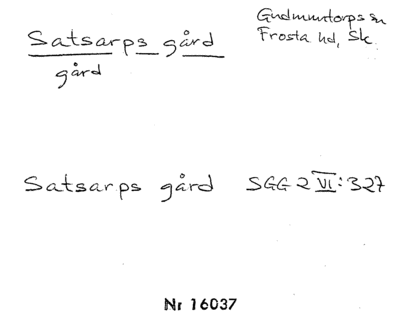 Satsarps gård
gård
Gudmuntorps sn
Frosta hd, Sk
Satsarps gård SGG 2 VI: 327
Nr 16037